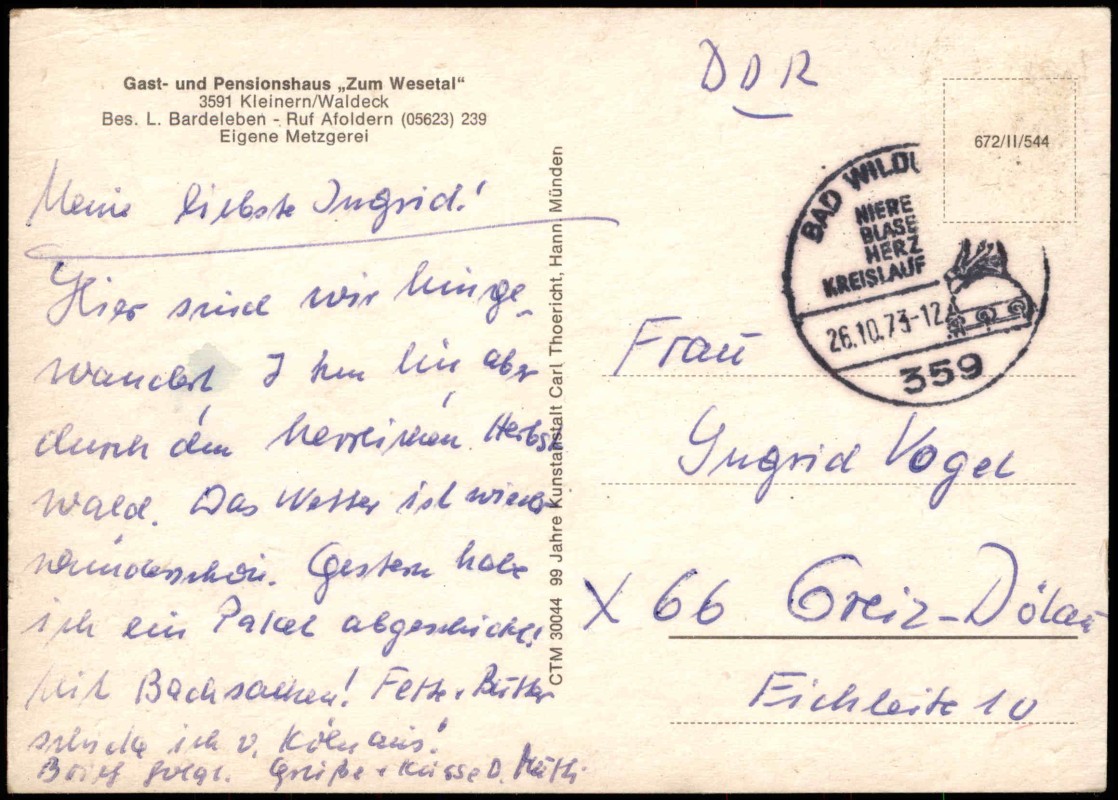 Gast- und Pensionshaus „Zum Wesetal“
3591 Kleinern/Waldeck
Bes. L. Bardeleben - Ruf Afoldern (05623) 239
Eigene Metzgerei
Meine liebste Ingrid!
Hier sind wir hinge-
wandert
durch den herrlichen Herbst
wald. Das Wetter ist wieder
wunderschön. Gestern habe
ich ein Paket abgeschickt!
Mit Backsachen! Fett + Butter
schicke ich v. Köln aus!
Brief folgt. Grüße + Küsse D. Mutti
CTM 30044 99 Jahre Kunstanstalt Carl Thoericht, Hann. Münden
DDR
672/II/544
BAD WILDU
NIERE
BLASE
HERZ
KREISLAUF
26.10.73-12
359
Frau
Ingrid Vogel
X 66 Greiz-Dölau
Eichleite 10